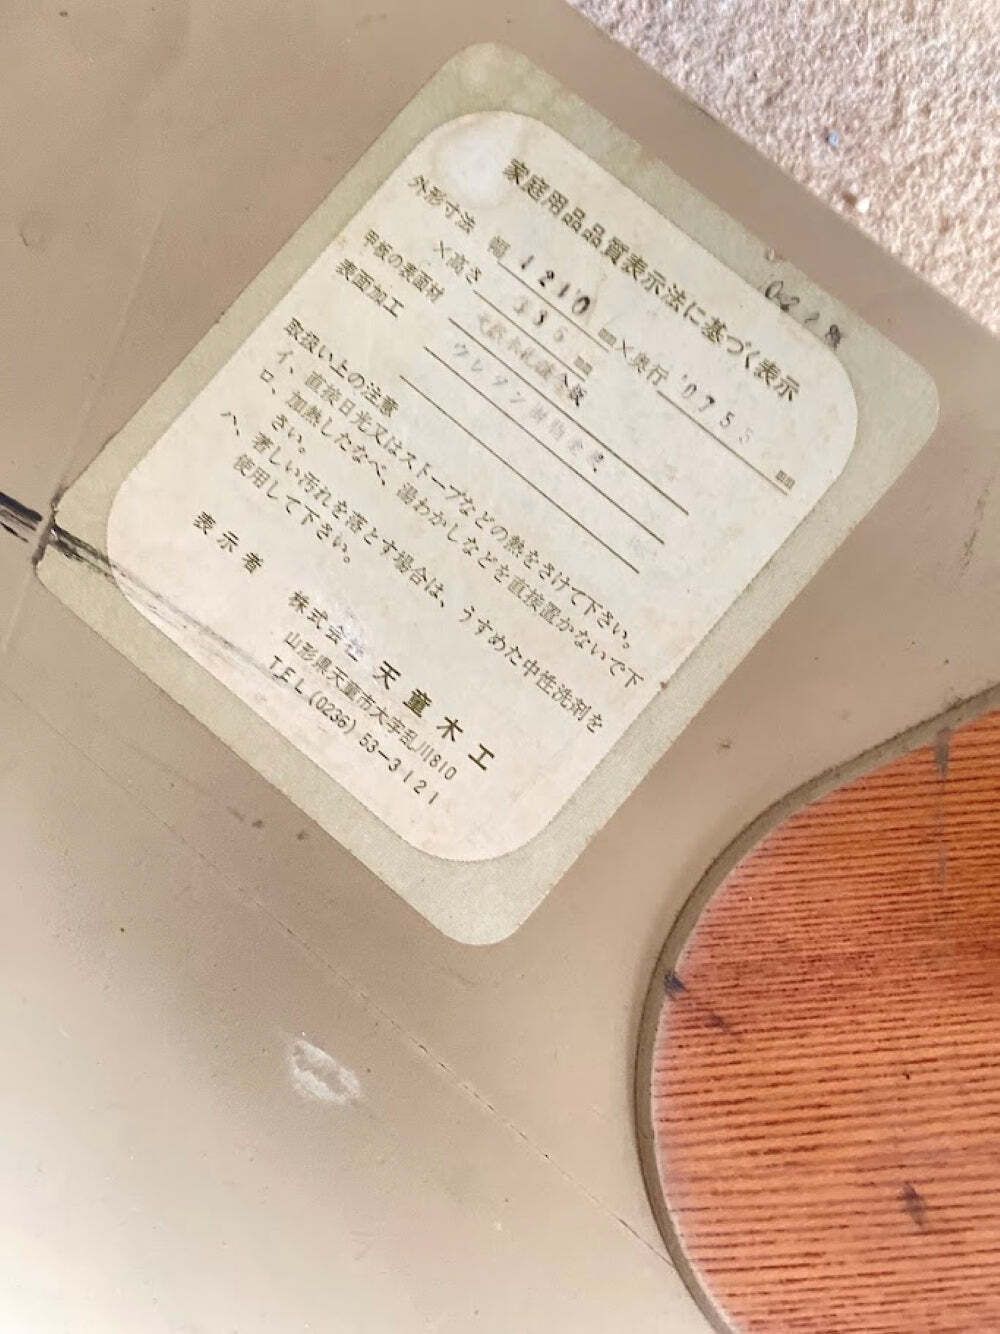 家庭用品品質表示法に基づく表示
外形寸法 幅1210㎜×奥行0755㎜
×高さ335㎜
甲板の表面材 天然木化粧合板
表面加工 ウレタン樹脂塗装
取扱い上の注意
イ、直接日光又はストーブなどの熱をさけて下さい。
ロ、加熱したなべ、湯わかしなどを直接置かないで下
さい。
ハ、著しい汚れを落とす場合は、うすめた中性洗剤を
使用して下さい。
表示者
株式会社 天童木工
山形県天童市大字乱川810
TEL(0236)53-3121